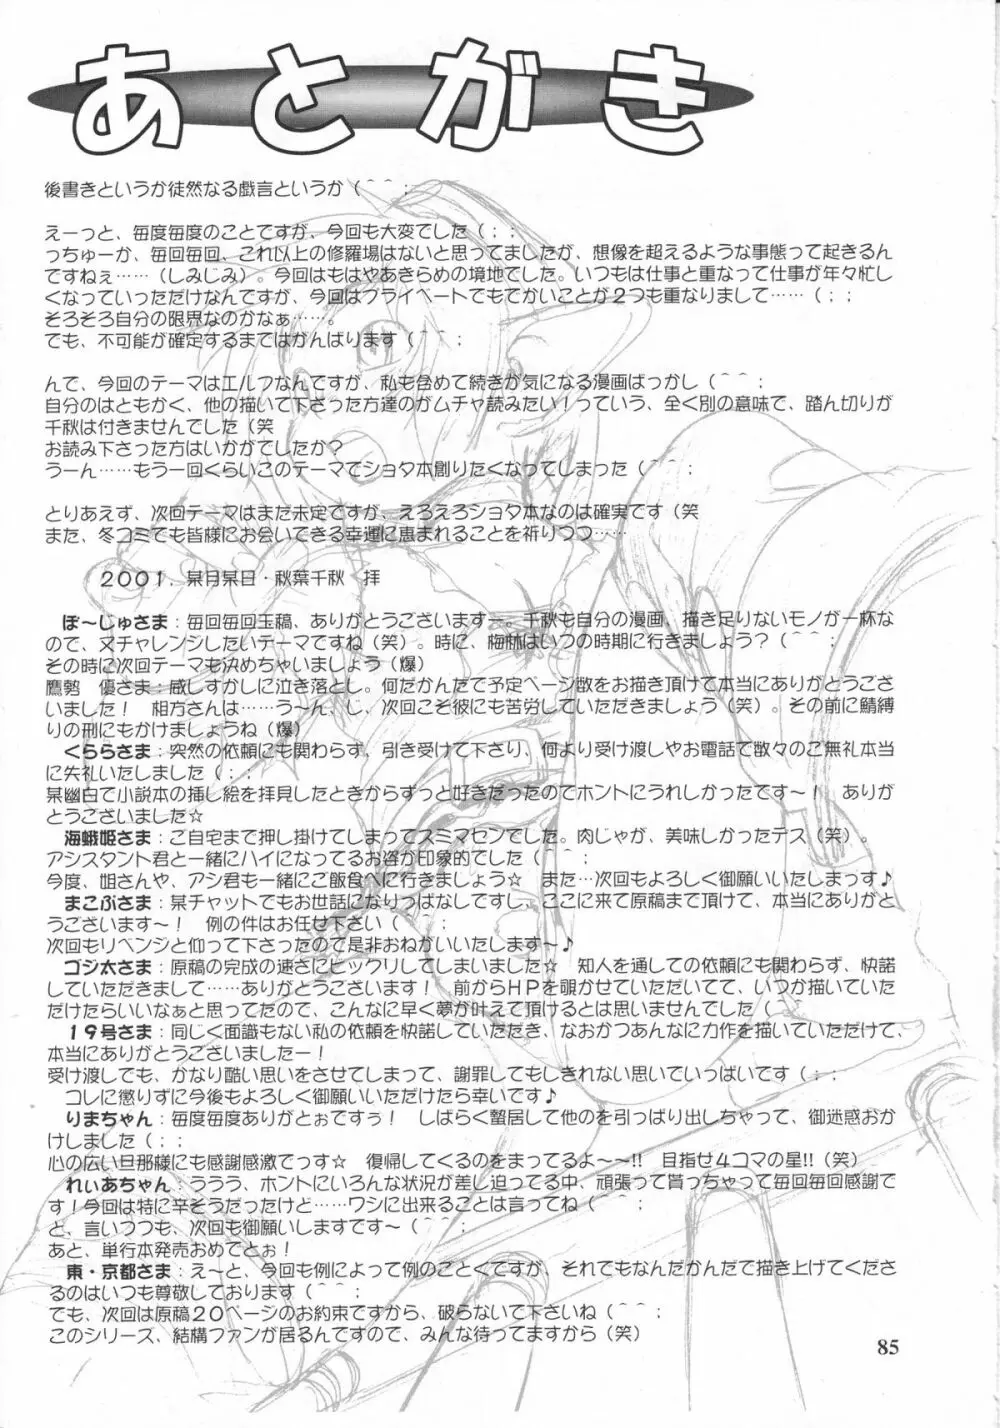 あとがき
後書きというか徒然なる戯言というか（＾＾；
えーっと、毎度毎度のことですが、今回も大変でした（；；
っちゅーか、毎回毎回、これ以上の修羅場はないと思ってましたが、想像を超えるような事態って起きるん
ですねぇ……（しみじみ）。今回はもはやあきらめの境地でした。いつもは仕事と重なって仕事が年々忙し
くなっていっただけなんですが、今回はプライベートでもでかいことが２つも重なりまして……（；；
そろそろ自分の限界なのかなぁ……。
でも、不可能が確定するまではがんばります（＾＾；
んで、今回のテーマはエルフなんですが、私も含めて続きが気になる漫画ばっかし（＾＾；
自分のはともかく、他の描いて下さった方達のがムチャ読みたい！っていう、全く別の意味で、踏ん切りが
千秋は付きませんでした（笑
お読み下さった方はいかがでしたか？
うーん……もう一回くらいこのテーマでショタ本創りたくなってしまった（＾＾；
とりあえず、次回テーマはまだ未定ですが、えろえろショタ本なのは確実です（笑
また、冬コミでも皆様にお会いできる幸運に恵まれることを祈りつつ……
２００１．某月某日・秋葉千秋　拝
ぼ～じゅさま：毎回毎回玉稿、ありがとうございますー。千秋も自分の漫画、描き足りないモノが一杯な
ので、又チャレンジしたいテーマですね（笑）。時に、梅林はいつの時期に行きましょう？（＾＾；
その時に次回テーマも決めちゃいましょう（爆）
鷹勢　優さま：威しすかしに泣き落とし。何だかんだで予定ページ数をお描き頂けて本当にありがとうござ
いました！　相方さんは……う～ん、し、次回こそ彼にも苦労していただきましょう（笑）。その前に鯖縛
りの刑にもかけましょうね（爆）
くららさま：突然の依頼にも関わらず、引き受けて下さり、何より受け渡しやお電話で散々のご無礼本当
に失礼いたしました（；；
某幽白で小説本の挿し絵を拝見したときからずっと好きだったのでホントにうれしかったです～！　ありが
とうございました☆
海蛾姫さま：ご自宅まで押し掛けてしまってスミマセンでした。肉じゃが、美味しかったデス（笑）。
アシスタント君と一緒にハイになってるお姿が印象的でした（＾＾；
今度、姐さんや、アシ君も一緒にご飯食べに行きましょう☆　また…次回もよろしく御願いいたしまっす♪
まこぷさま：某チャットでもお世話になりっぱなしですし、ここに来て原稿まで頂けて、本当にありがと
うございます～！　例の件はお任せ下さい（＾＾；
次回もリベンジと仰って下さったので是非おねがいいたします～♪
ゴジ太さま：原稿の完成の速さにビックリしてしまいました☆　知人を通しての依頼にも関わらず、快諾
していただきまして……ありがとうございます！　前からＨＰを覗かせていただいてて、いつか描いていた
だけたらいいなぁと思ってたので、こんなに早く夢が叶えて頂けるとは思いませんでした（＾＾；
１９号さま：同じく面識もない私の依頼を快諾していただき、なおかつあんなに力作を描いていただけて、
本当にありがとうございましたー！
受け渡しでも、かなり酷い思いをさせてしまって、謝罪してもしきれない思いでいっぱいです（；；
コレに懲りずに今後もよろしく御願いいただけたら幸いです♪
りまちゃん：毎度毎度ありがとぉですぅ！　しばらく蟄居して他のを引っぱり出しちゃって、御迷惑おか
けしました（；；
心の広い旦那様にも感謝感激でっす☆　復帰してくるのをまってるよ～～!!　目指せ４コマの星!!（笑）
れぃあちゃん：ううう、ホントにいろんな状況が差し迫ってる中、頑張って貰っちゃって毎回毎回感謝で
す！今回は特に辛そうだったけど…ワシに出来ることは言ってね（＾＾；
と、言いつつも、次回も御願いしますです～（＾＾；
あと、単行本発売おめでとぉ！
東・京都さま：え～と、今回も例によって例のごとくですが、それでもなんだかんだで描き上げてくださ
るのはいつも尊敬しております（＾＾；
でも、次回は原稿２０ページのお約束ですから、破らないで下さいね（＾＾；
このシリーズ、結構ファンが居るんですので、みんな待ってますから（笑）
85